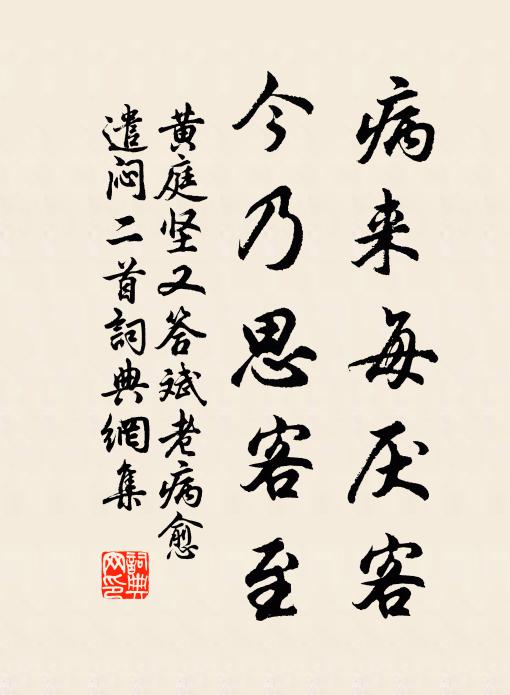 病来每厌客
今乃思客至
黄庭坚又答斌老病愈
遣闷二首詞典網集
詞典
网印